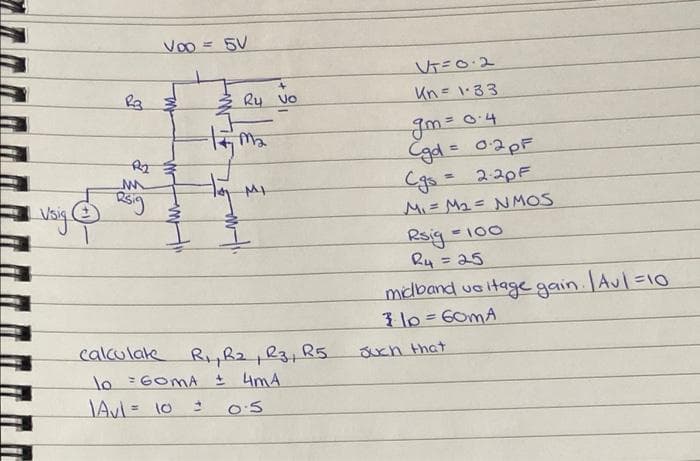 VDD = 5V
R3
R4
+
Vo
-
M2
R2
Rsig
M1
Vsig
+
VT = 0.2
Kn = 1.33
gm = 0.4
Cgd = 0.2pF
Cgs = 2.2pF
M1 = M2 = NMOS
Rsig = 100
R4 = 25
midband voltage gain. |Av| = 10
& ID = 60mA
calculate R1, R2, R3, R5 such that
ID = 60mA ± 4mA
|Av| = 10 ± 0.5